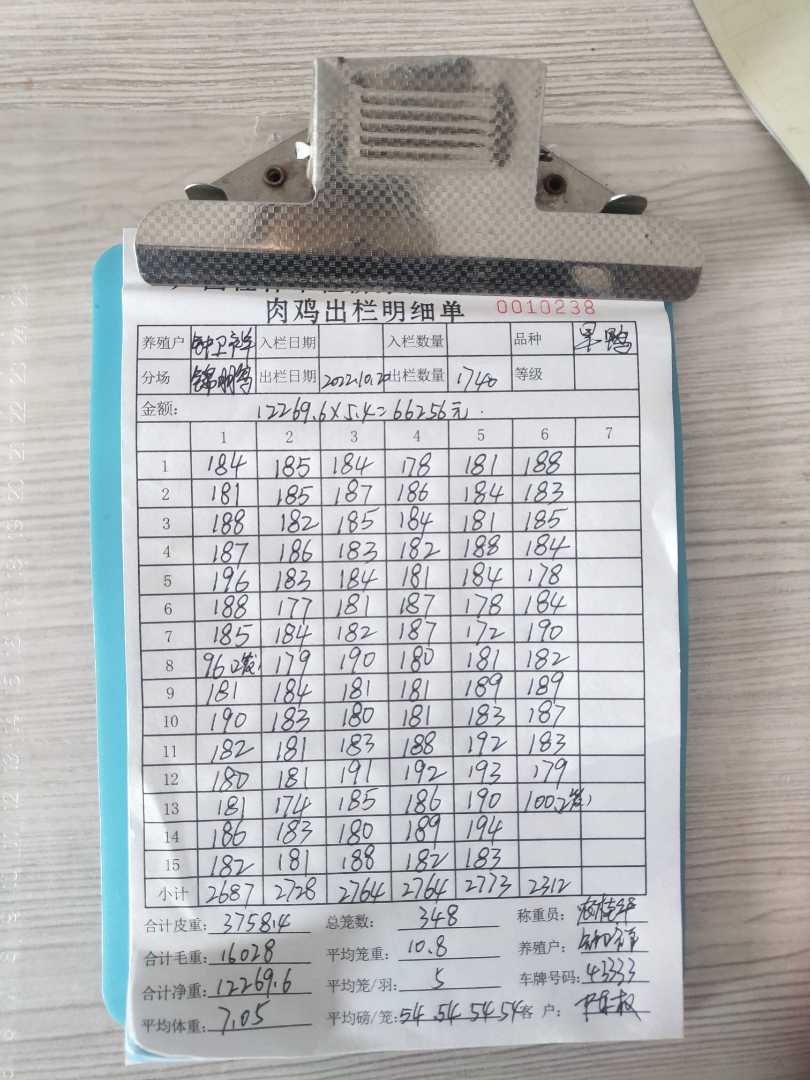 肉鸡出栏明细单 0010238
养殖户 入栏日期 入栏数量 品种
分场 出栏日期 2022.10.20 出栏数量 1740 等级
金额: 12269.6×5.4=66256元.
1 2 3 4 5 6 7
1 184 185 184 178 181 188
2 181 185 187 186 184 183
3 188 182 185 184 181 185
4 187 186 183 182 188 184
5 196 183 184 181 184 178
6 188 177 181 187 178 184
7 185 184 182 187 172 190
8 96 179 190 180 181 182
9 181 184 181 181 189 189
10 190 183 180 181 183 187
11 182 181 183 188 192 183
12 180 181 191 192 193 179
13 181 174 185 186 190 100
14 186 183 180 189 194
15 182 181 188 182 183
小计 2687 2728 2764 2764 2773 2312
合计皮重: 3758.4 总笼数: 348 称重员:
合计毛重: 16028 平均笼重: 10.8 养殖户:
合计净重: 12269.6 平均笼/羽: 5 车牌号码: 43333
平均体重: 7.05 平均磅/笼: 54 54 54 54 客户: